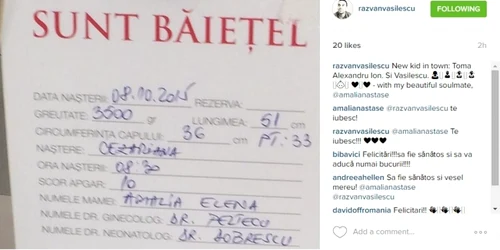 SUNT BĂIEȚEL
DATA NAȘTERII: 08.10.2015 REZERVA:
GREUTATE: 3500 grame LUNGIMEA: 51 cm
CIRCUMFERINTA CAPULUI: 36 cm PT: 33
NAȘTERE: CEZARIANA
ORA NAȘTERII: 08:30
SCOR APGAR: 10
NUMELE MAMEI: AMALIA ELENA
NUMELE DR. GINECOLOG: DR. PELTECU
NUMELE DR. NEONATOLOG: DR. DOBRESCU
razvanvasilescu
FOLLOWING
20 likes
2h
razvanvasilescu New kid in town: Toma
Alexandru Ion. Si Vasilescu.
- with my beautiful soulmate,
@amalianastase
amalianastase @razvanvasilescu te
iubesc!
razvanvasilescu @amalianastase Te
iubesc!!! ♥♥♥
bibavici Felicitări!!!sa fie sănătos si sa va
aducă numai bucurii!!!!
andreeahellen Sa fie sănătos si vesel
mereu! @amalianastase
@razvanvasilescu
davidoffromania Felicitari!!